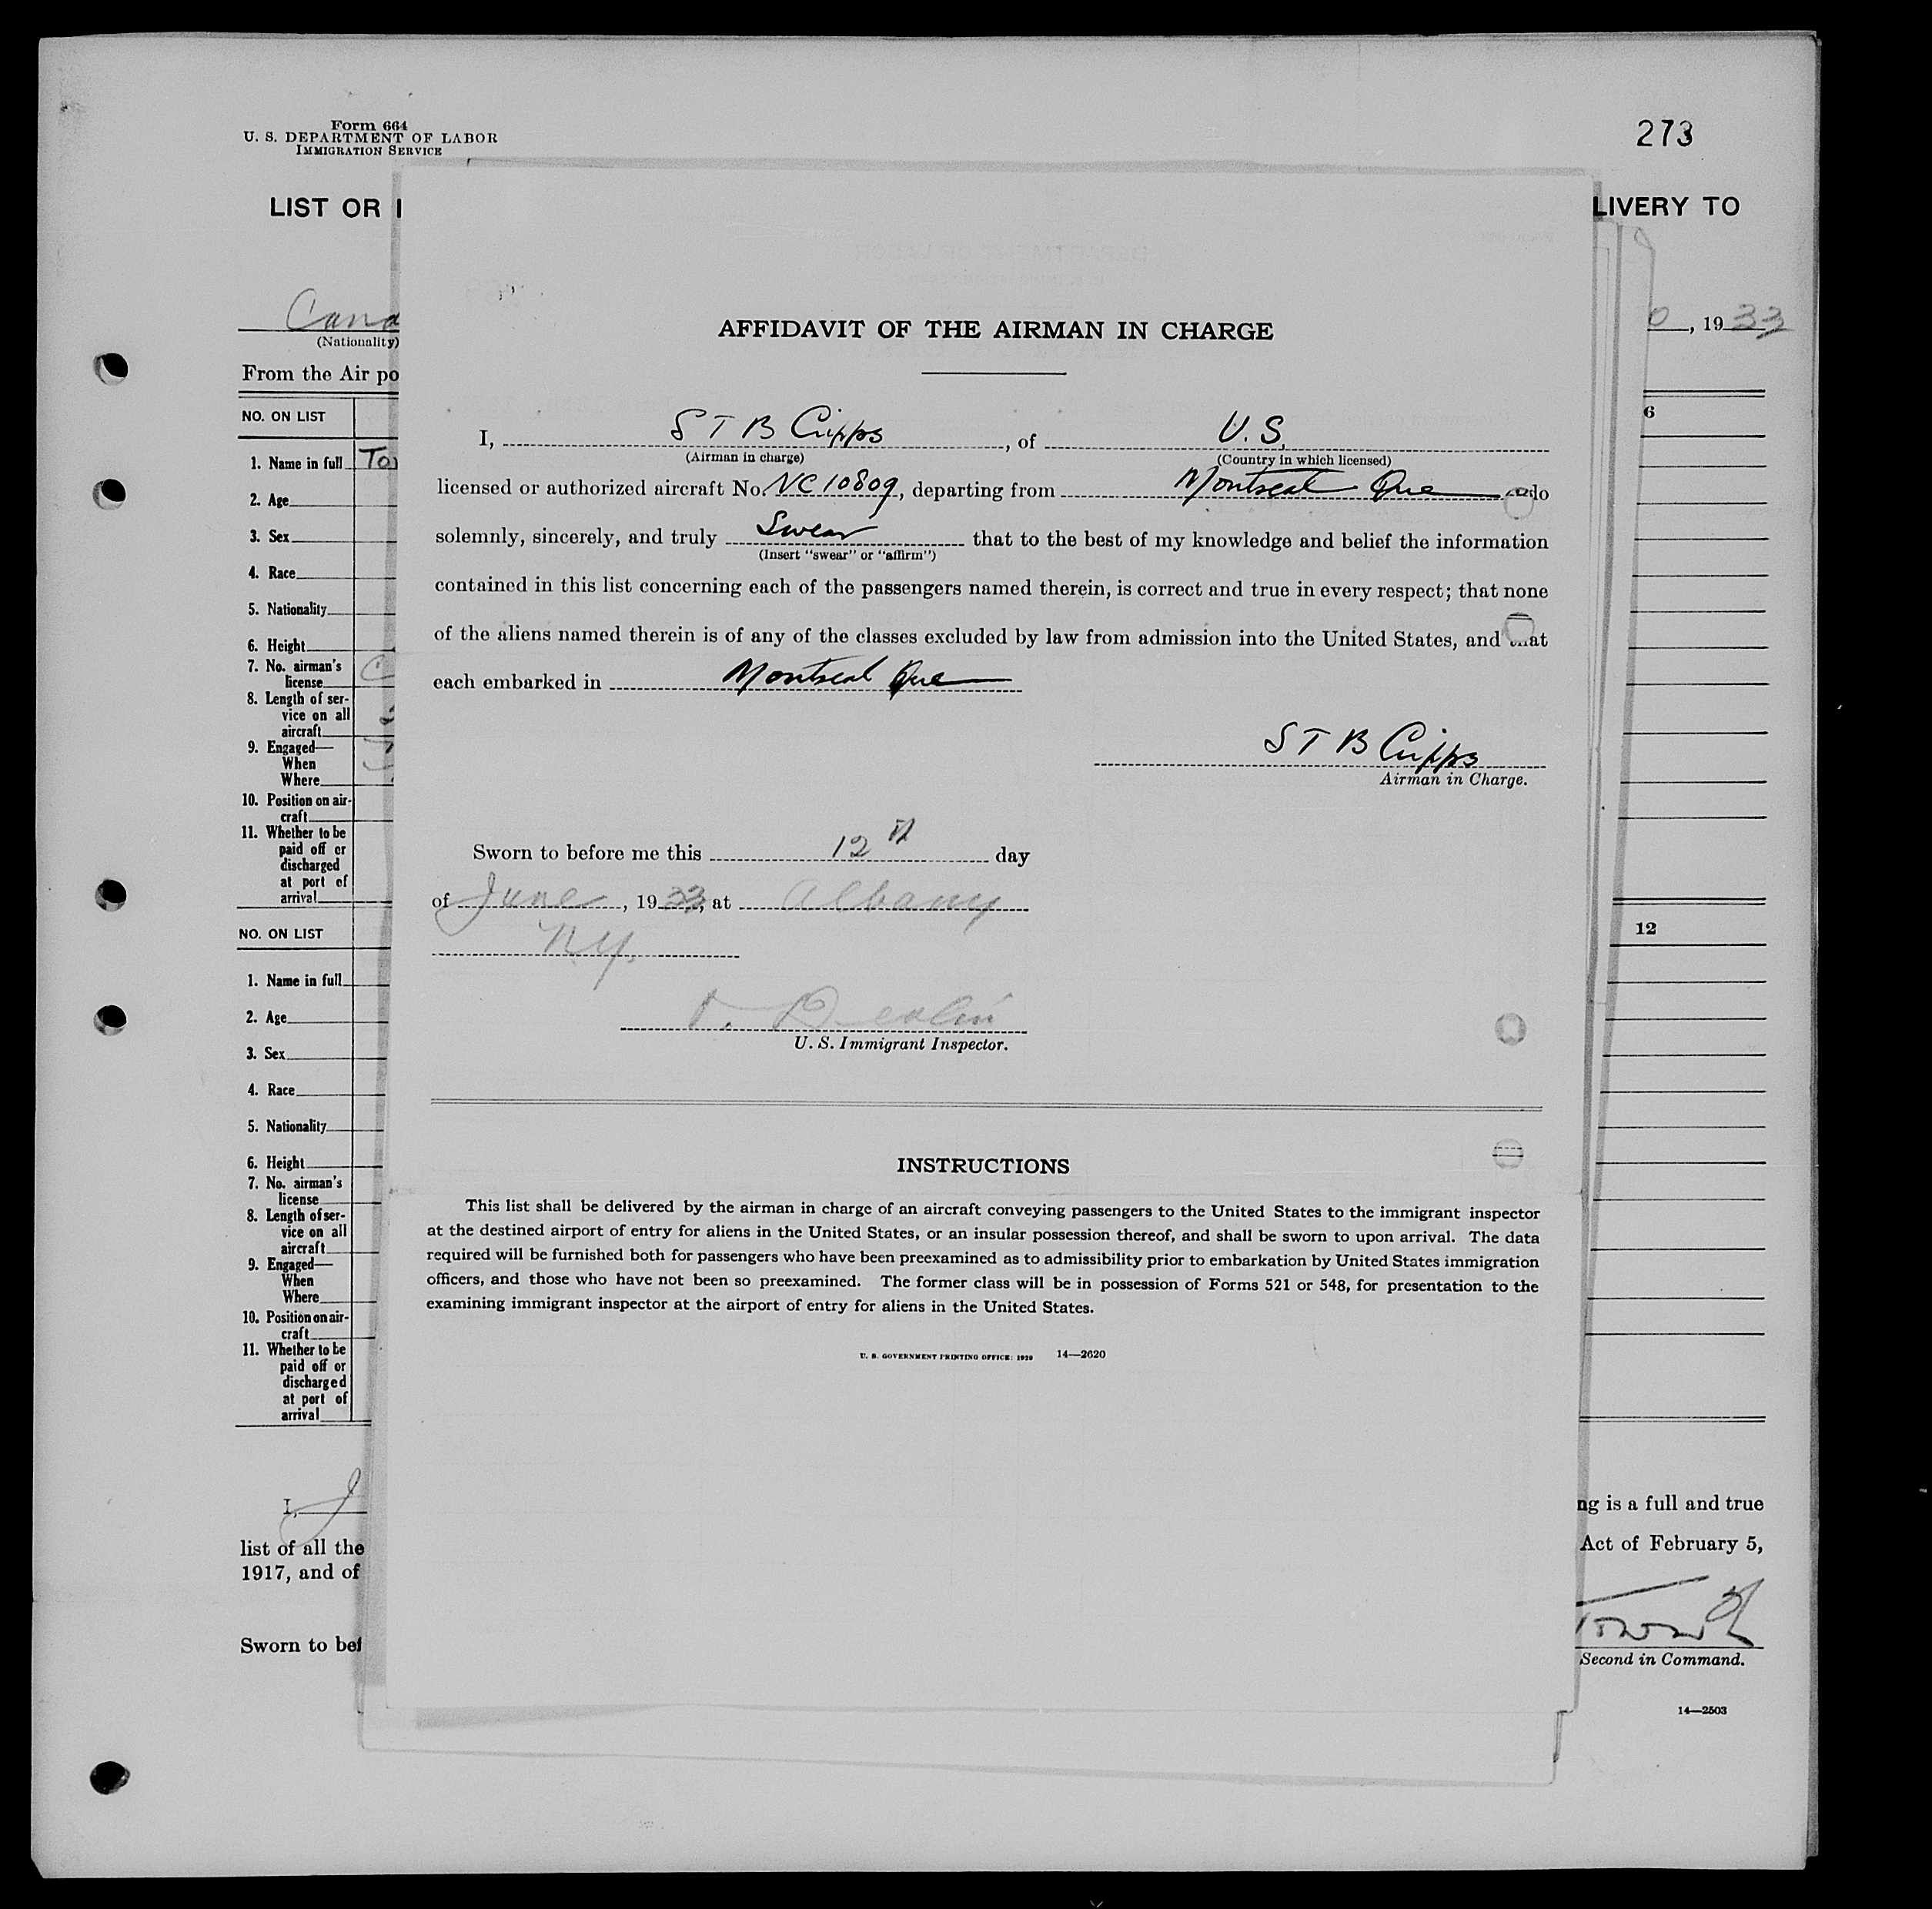 Form 664
U. S. DEPARTMENT OF LABOR
IMMIGRATION SERVICE
273
LIST OR
LIVERY TO
Cana
(Nationality)
, 1933
From the Air po
NO. ON LIST
6
1. Name in full
2. Age
3. Sex
4. Race
5. Nationality
6. Height
7. No. airman's
license
8. Length of ser-
vice on all
aircraft
9. Engaged—
When
Where
10. Position on air-
craft
11. Whether to be
paid off or
discharged
at port of
arrival
NO. ON LIST
12
1. Name in full
2. Age
3. Sex
4. Race
5. Nationality
6. Height
7. No. airman's
license
8. Length of ser-
vice on all
aircraft
9. Engaged—
When
Where
10. Position on air-
craft
11. Whether to be
paid off or
discharged
at port of
arrival
I, J
ng is a full and true
list of all the
Act of February 5,
1917, and of
Sworn to bef
Second in Command.
14—2503
AFFIDAVIT OF THE AIRMAN IN CHARGE
I, S T B Cripps, of U. S.
(Airman in charge) (Country in which licensed)
licensed or authorized aircraft No. NC10809, departing from Montreal Que do
solemnly, sincerely, and truly Swear that to the best of my knowledge and belief the information
(Insert "swear" or "affirm")
contained in this list concerning each of the passengers named therein, is correct and true in every respect; that none
of the aliens named therein is of any of the classes excluded by law from admission into the United States, and that
each embarked in Montreal Que
S T B Cripps
Airman in Charge.
Sworn to before me this 12th day
of June, 1933, at Albany
N.Y.
U. S. Immigrant Inspector.
INSTRUCTIONS
This list shall be delivered by the airman in charge of an aircraft conveying passengers to the United States to the immigrant inspector
at the destined airport of entry for aliens in the United States, or an insular possession thereof, and shall be sworn to upon arrival. The data
required will be furnished both for passengers who have been preexamined as to admissibility prior to embarkation by United States immigration
officers, and those who have not been so preexamined. The former class will be in possession of Forms 521 or 548, for presentation to the
examining immigrant inspector at the airport of entry for aliens in the United States.
U. S. GOVERNMENT PRINTING OFFICE: 1929 14—2620